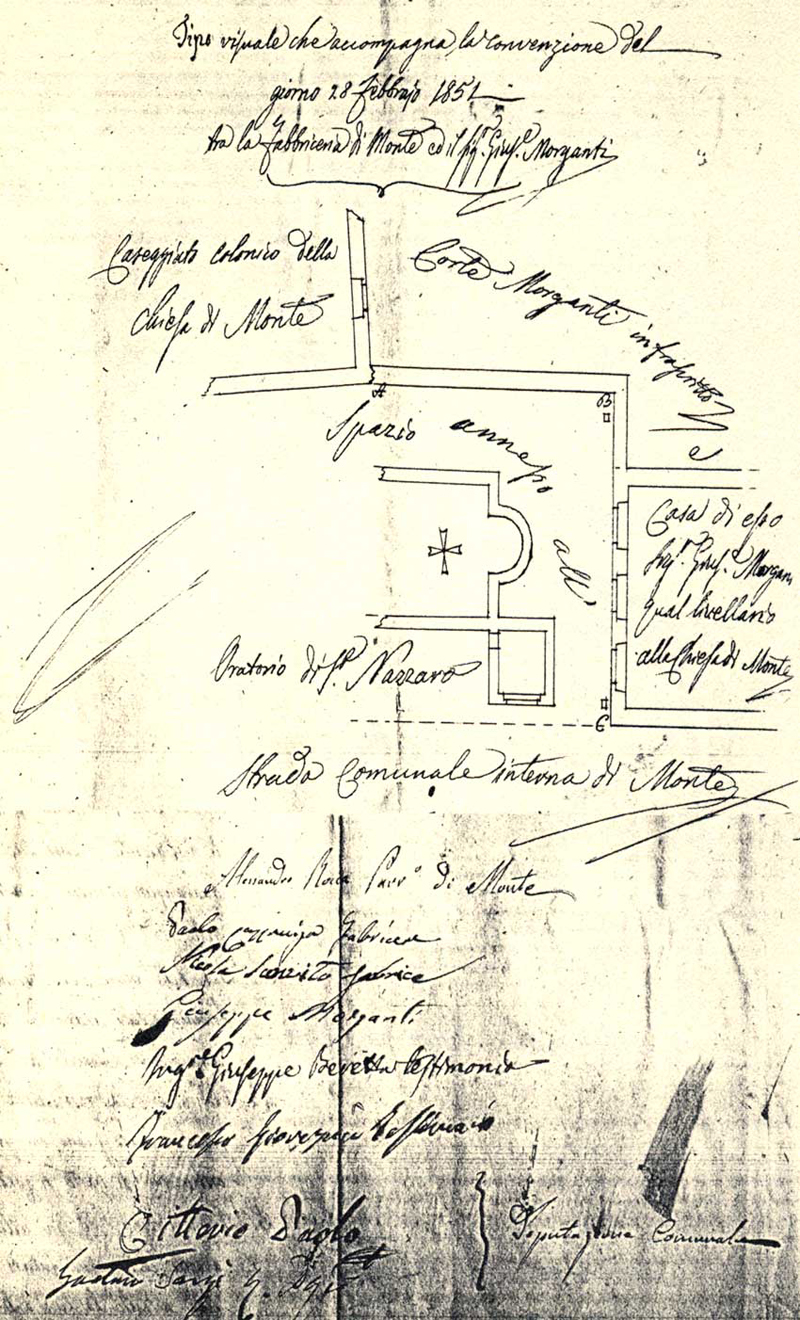 Tipo visuale che accompagna la convenzione del
giorno 28 febbrajo 1851
tra la Fabbriceria di Monte ed il Sigr. Giuse. Morganti
Caseggiato colonico della
Chiesa di Monte
Corte Morganti infrascritto
e
A
B
Spazio annesso all'
Casa di esso
Sigr. Giuse. Morgan
qual livellario
alla Chiesa di Monte
Oratorio di S. Nazzaro
C
Strada Comunale interna di Monte
Alessandro Parro. di Monte
Paolo
Nicola
Giuseppe Morganti
Ingre. Giuseppe Beretta testimonio
Francesco testimonio
Cittovio Paolo
Deputazione Comunale
Gaetano